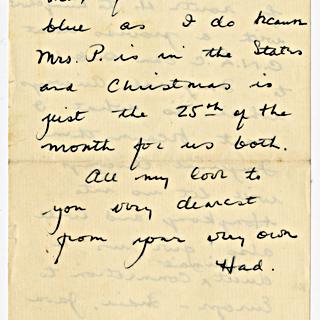 blue as I do because
Mrs. P. is in the States
and Christmas is
just the 25th of the
month for us both.
All my love to
you very dearest
from your very own
Had.